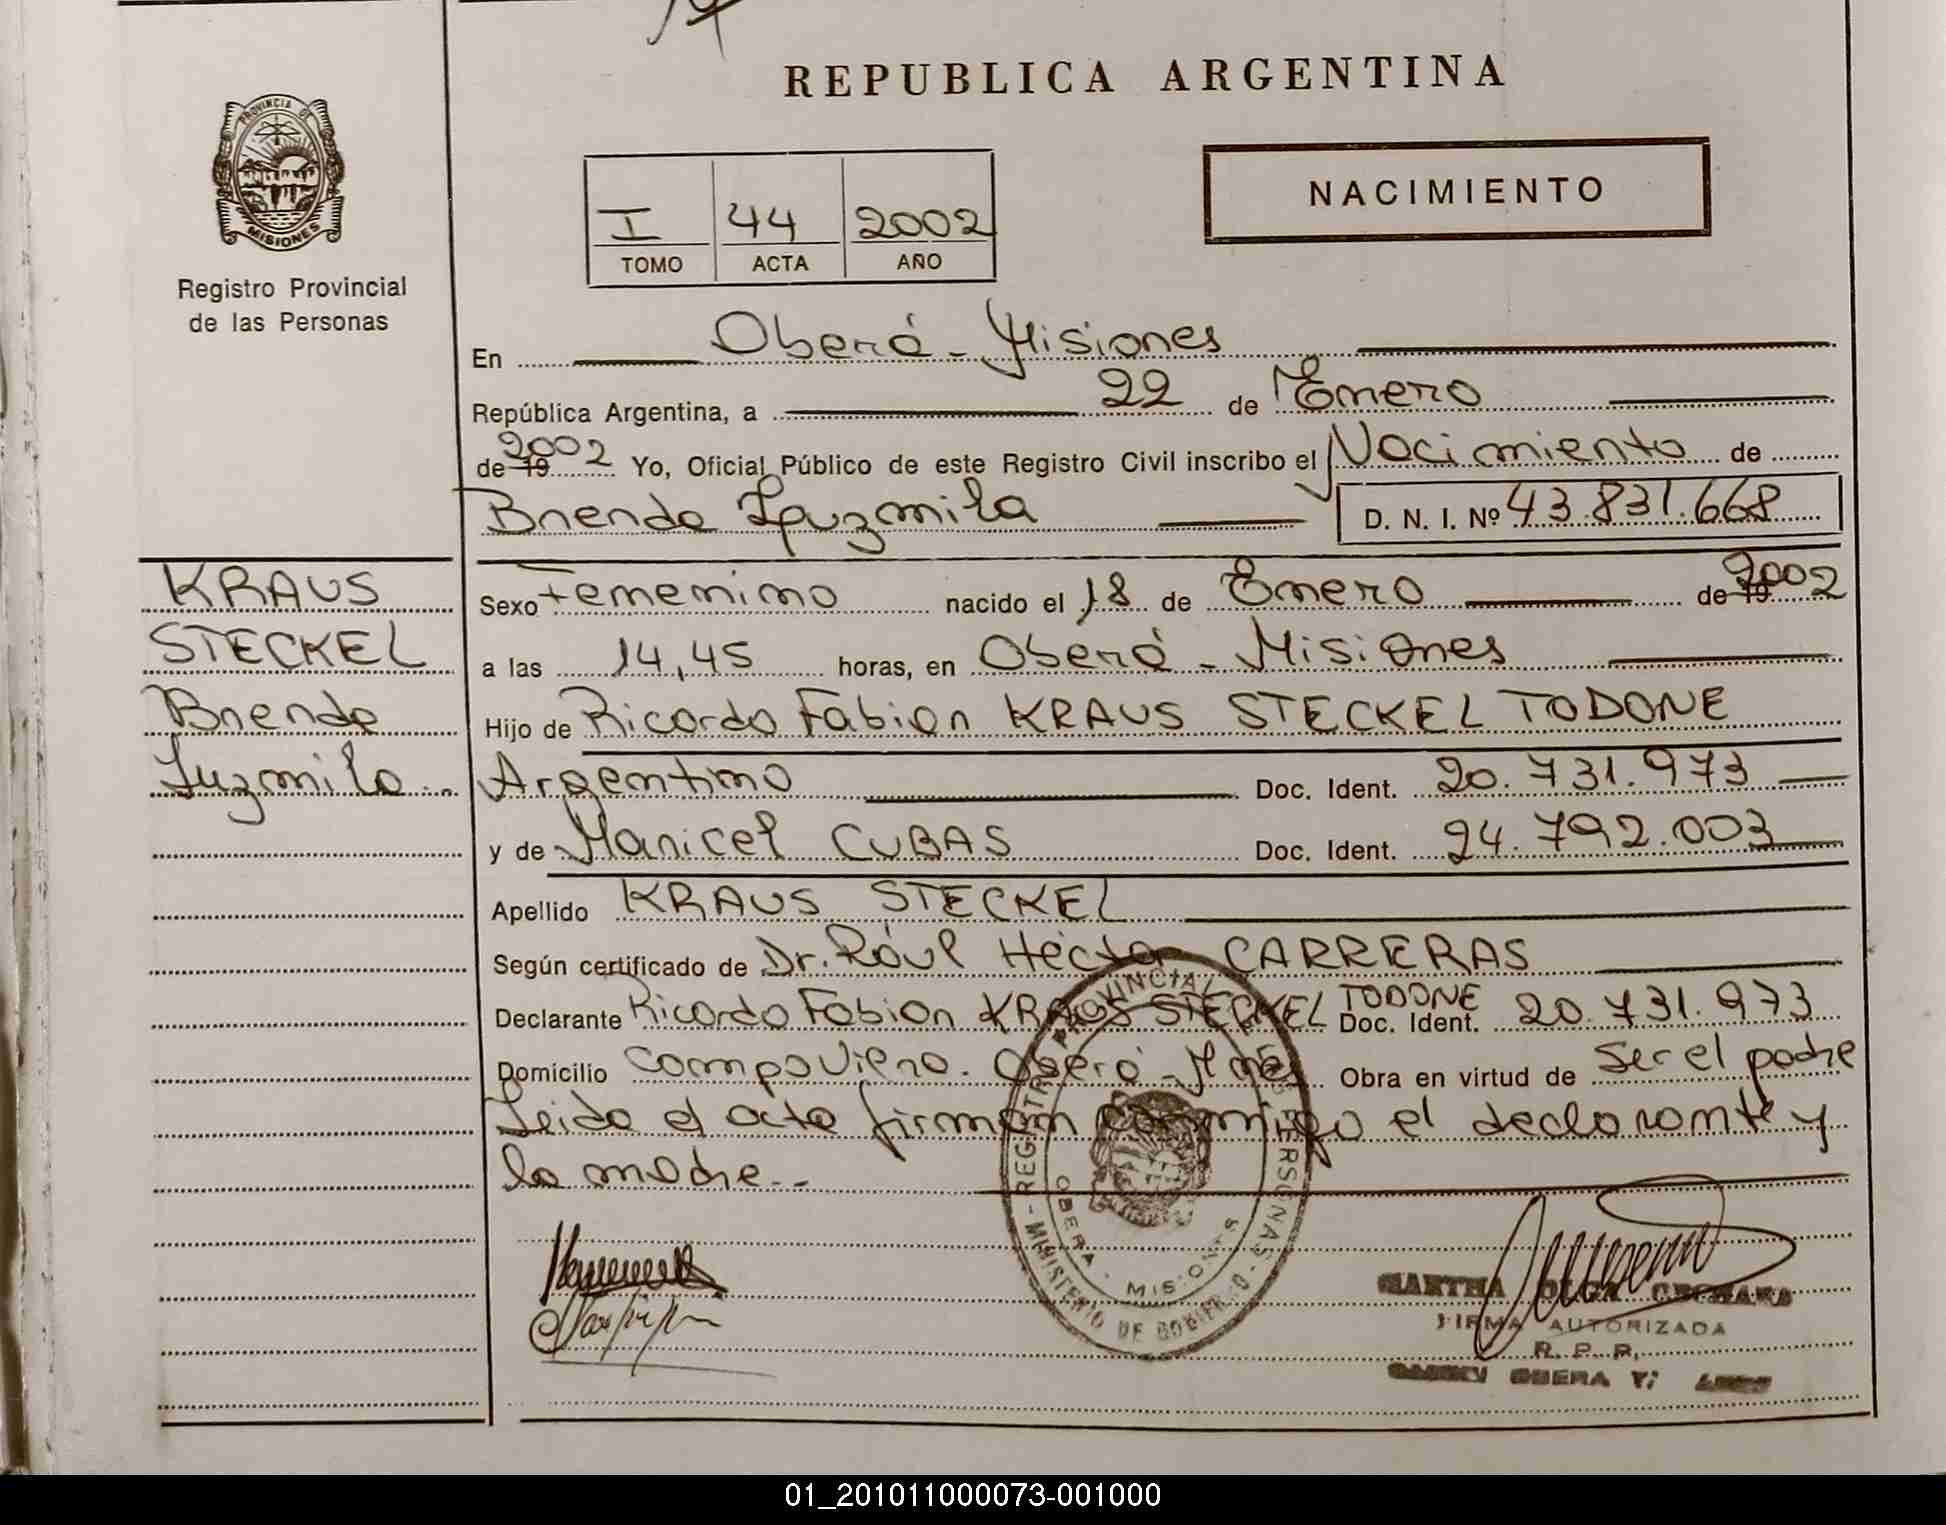 REPUBLICA ARGENTINA
PROVINCIA DE
MISIONES
Registro Provincial
de las Personas
NACIMIENTO
I 44 2002
TOMO ACTA AÑO
En Oberá - Misiones
República Argentina, a 22 de Enero
de 19 2002 Yo, Oficial Público de este Registro Civil inscribo el Nacimiento de
Brenda Luzmila D. N. I. Nº 43.831.668
KRAUS
STECKEL
Brenda
Luzmila
Sexo Femenino nacido el 18 de Enero de 19 2002
a las 14,45 horas, en Oberá - Misiones
Hijo de Ricardo Fabian KRAUS STECKEL TODONE
Argentino Doc. Ident. 20.731.973
y de Maricel CUBAS Doc. Ident. 24.792.003
Apellido KRAUS STECKEL
Según certificado de Dr. Raúl Héctor CARRERAS
Declarante Ricardo Fabian KRAUS STECKEL TODONE Doc. Ident. 20.731.973
Domicilio Campo Viera. Oberá - Mnes Obra en virtud de ser el padre
Leida el acta firman conmigo el declarante y
la madre.-
REGISTRO PROVINCIAL DE LAS PERSONAS
MINISTERIO DE GOBIERNO
OBERA - MISIONES
MARTHA OLGA
FIRMA AUTORIZADA
R. P. P.
OBERA
01_201011000073-001000